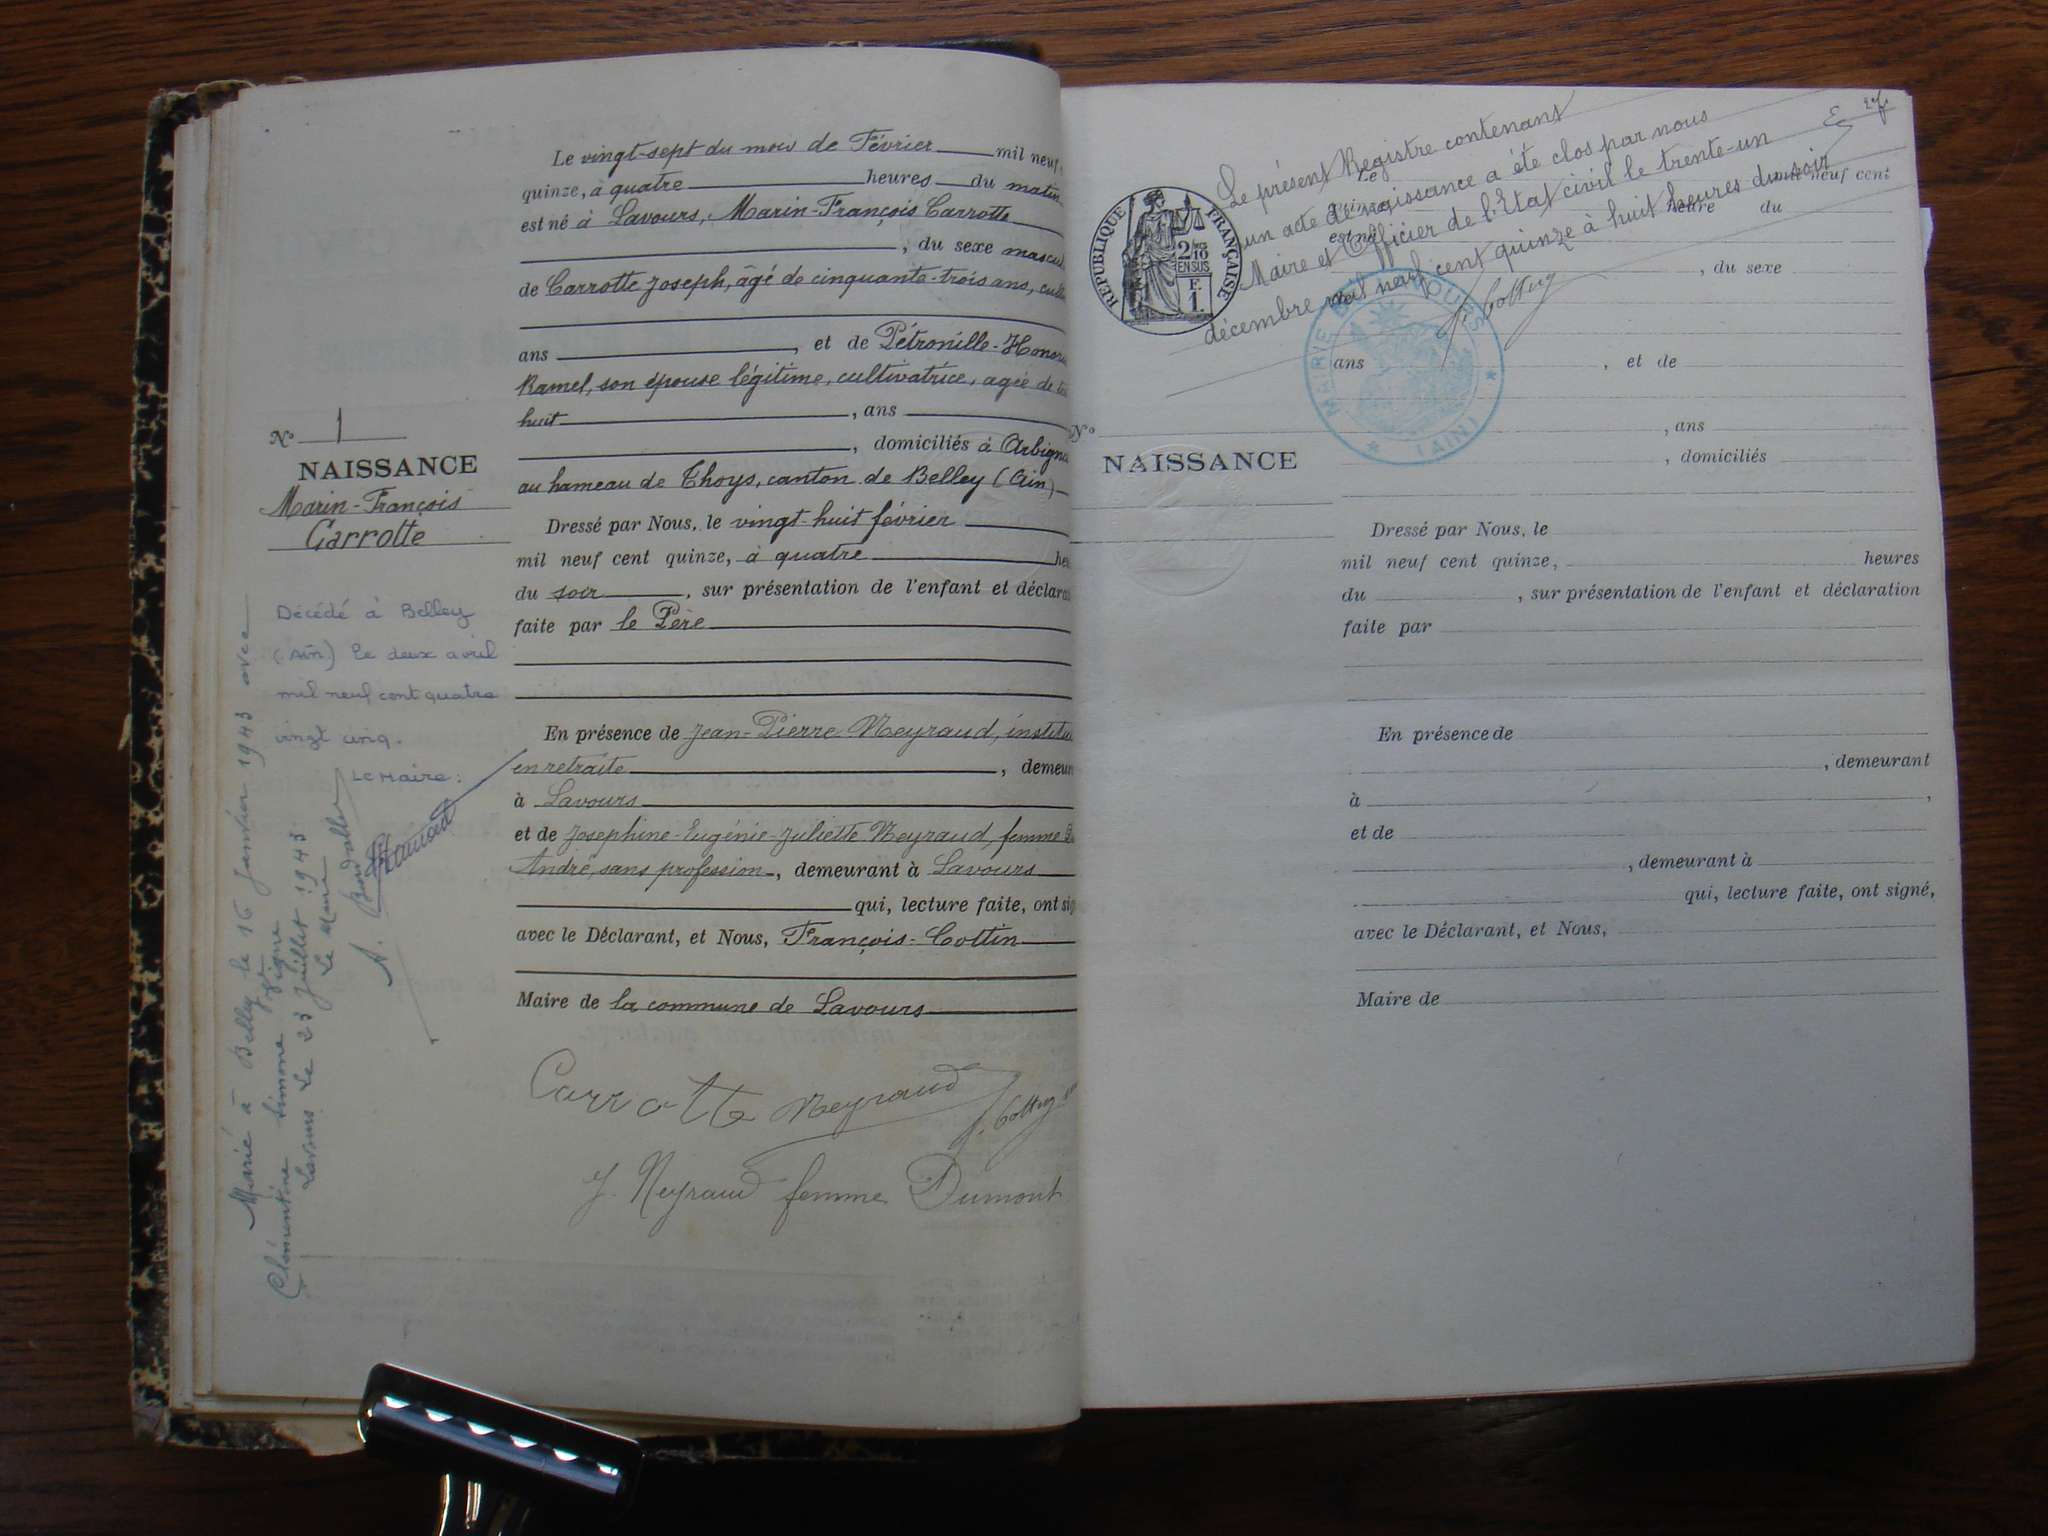 Le vingt-sept du mois de Février mil neuf
quinze, à quatre heures du matin
est né à Lavours, Marin-François Carrotte
, du sexe mascul
de Carrotte Joseph, âgé de cinquante-trois ans, culti
ans , et de Pétronille-Honori
Ramel, son épouse légitime, cultivatrice, agée de
huit , ans
, domiciliés à Arbigni
au hameau de Thoys, canton de Belley (Ain)
Dressé par Nous, le vingt-huit février
mil neuf cent quinze, à quatre he
du soir , sur présentation de l'enfant et déclara
faite par le Père
En présence de Jean-Pierre Neyraud, institu
en retraite , demeur
à Lavours
et de Josephine-Eugénie-Juliette Neyraud, femme
André, sans profession , demeurant à Lavours
qui, lecture faite, ont sig
avec le Déclarant, et Nous, François Cottin
Maire de la commune de Lavours
Carrotte Neyraud
J. Neyraud femme Dumont
No 1
NAISSANCE
Marin-François
Carrotte
Décédé à Belley
(Ain) le deux avril
mil neuf cent quatre
vingt cinq.
Le Maire:
Marié à Belley le 16 Janvier 1943 avec
Clémentine Simone
Lavours Le 23 Juillet 1943
Le Maire
Le présent Registre contenant
un acte de naissance a été clos par nous
Maire et Officier de l'Etat civil le trente-un
décembre mil neuf cent quinze à huit heures du soir
REPUBLIQUE FRANÇAISE
2/10
EN SUS
F.
1.
MAIRIE DE LAVOURS
(AIN)
Le mil neuf cent
quinze, heure du
est né
, du sexe
ans , et de
, ans
No
NAISSANCE
, domiciliés
Dressé par Nous, le
mil neuf cent quinze, heures
du , sur présentation de l'enfant et déclaration
faite par
En présence de
, demeurant
à ,
et de
, demeurant à
qui, lecture faite, ont signé,
avec le Déclarant, et Nous,
Maire de